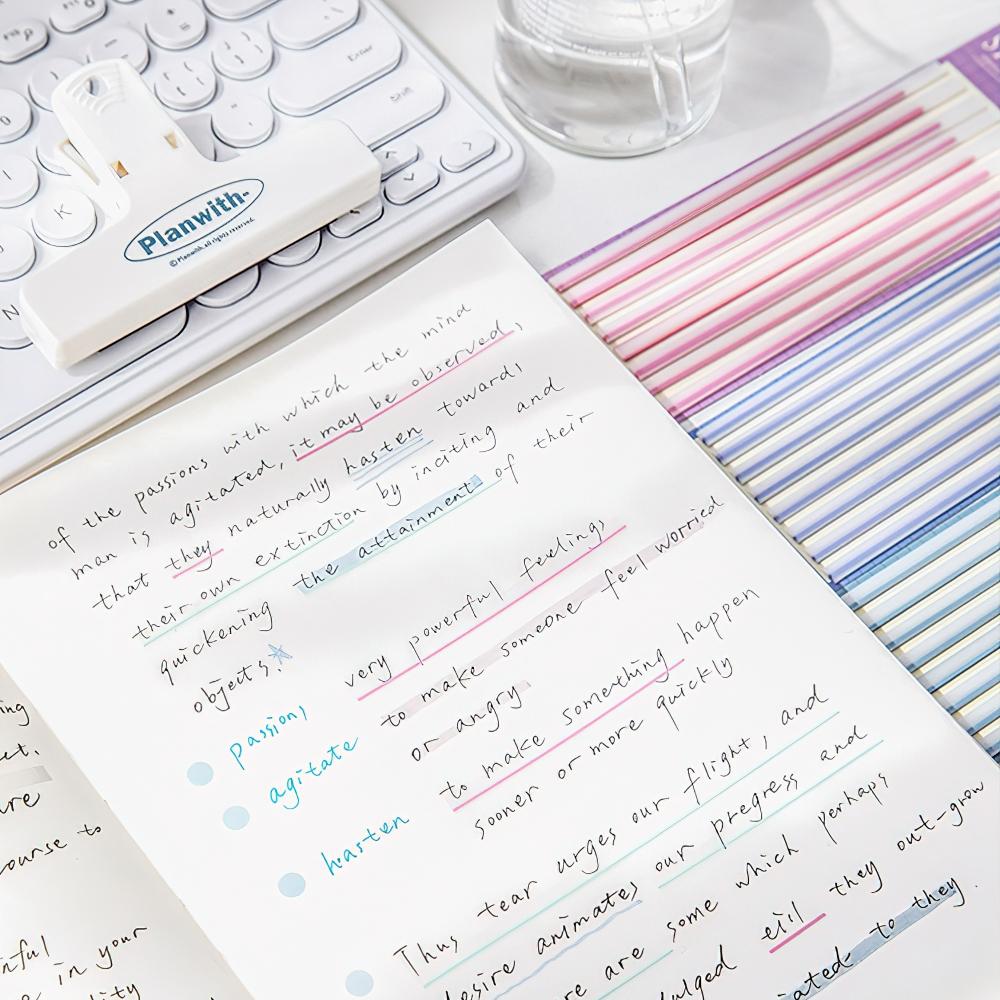 Enter
Shift
K
N
Planwith-
© Planwith, all rights reserved.
of the passions with which the mind
man is agitated, it may be observed,
that they naturally hasten towards
their own extinction by inciting and
quickening the attainment of their
objects.
passions very powerful feelings
agitate to make someone feel worried
or angry
hasten to make something happen
sooner or more quickly
Thus tear urges our flight, and
desire animates our pregress and
re are some which perhaps
dulged eill they out-grow
iated to they.
ing
ure
course to
nful
e in your